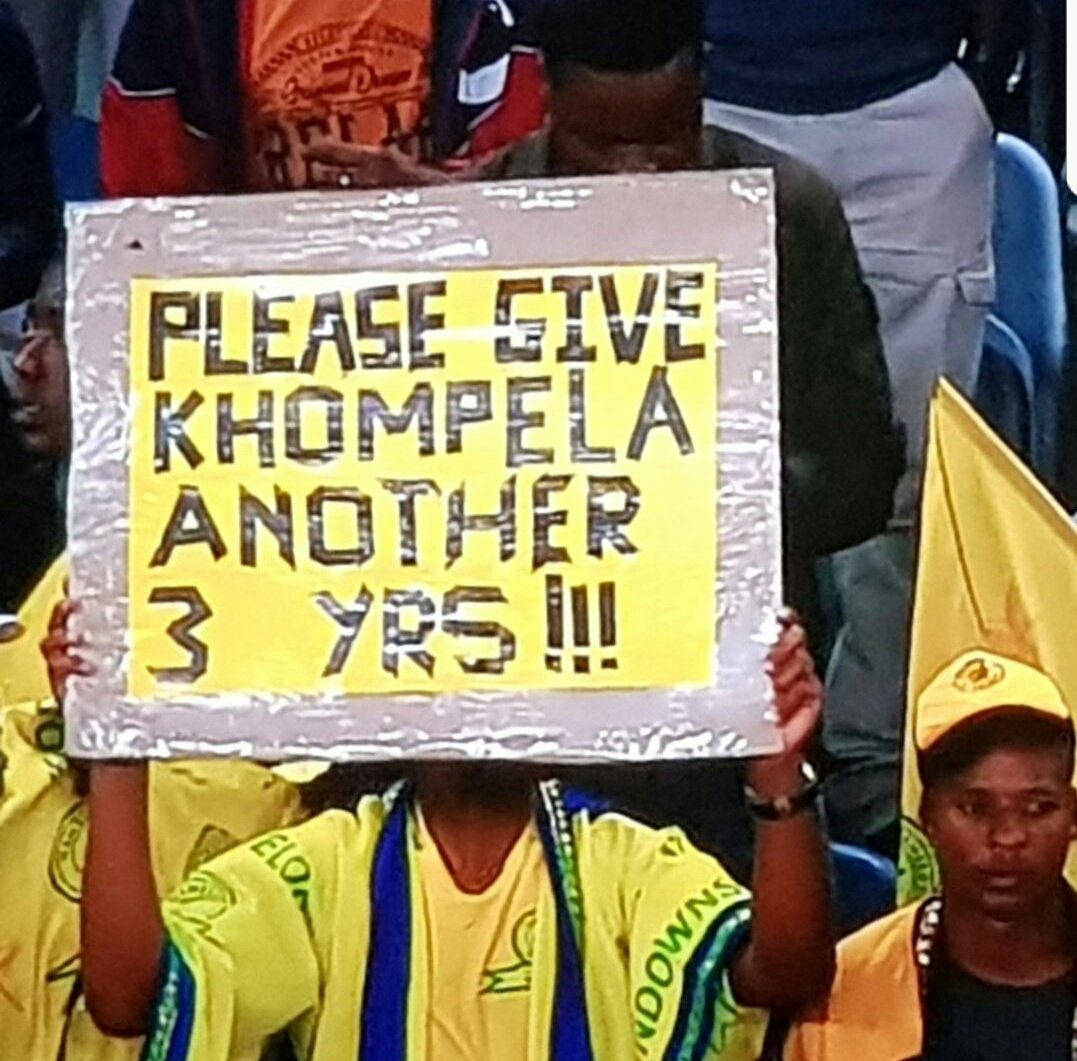 PLEASE GIVE
KHOMPELA
ANOTHER
3 YRS !!!
NDOWNS